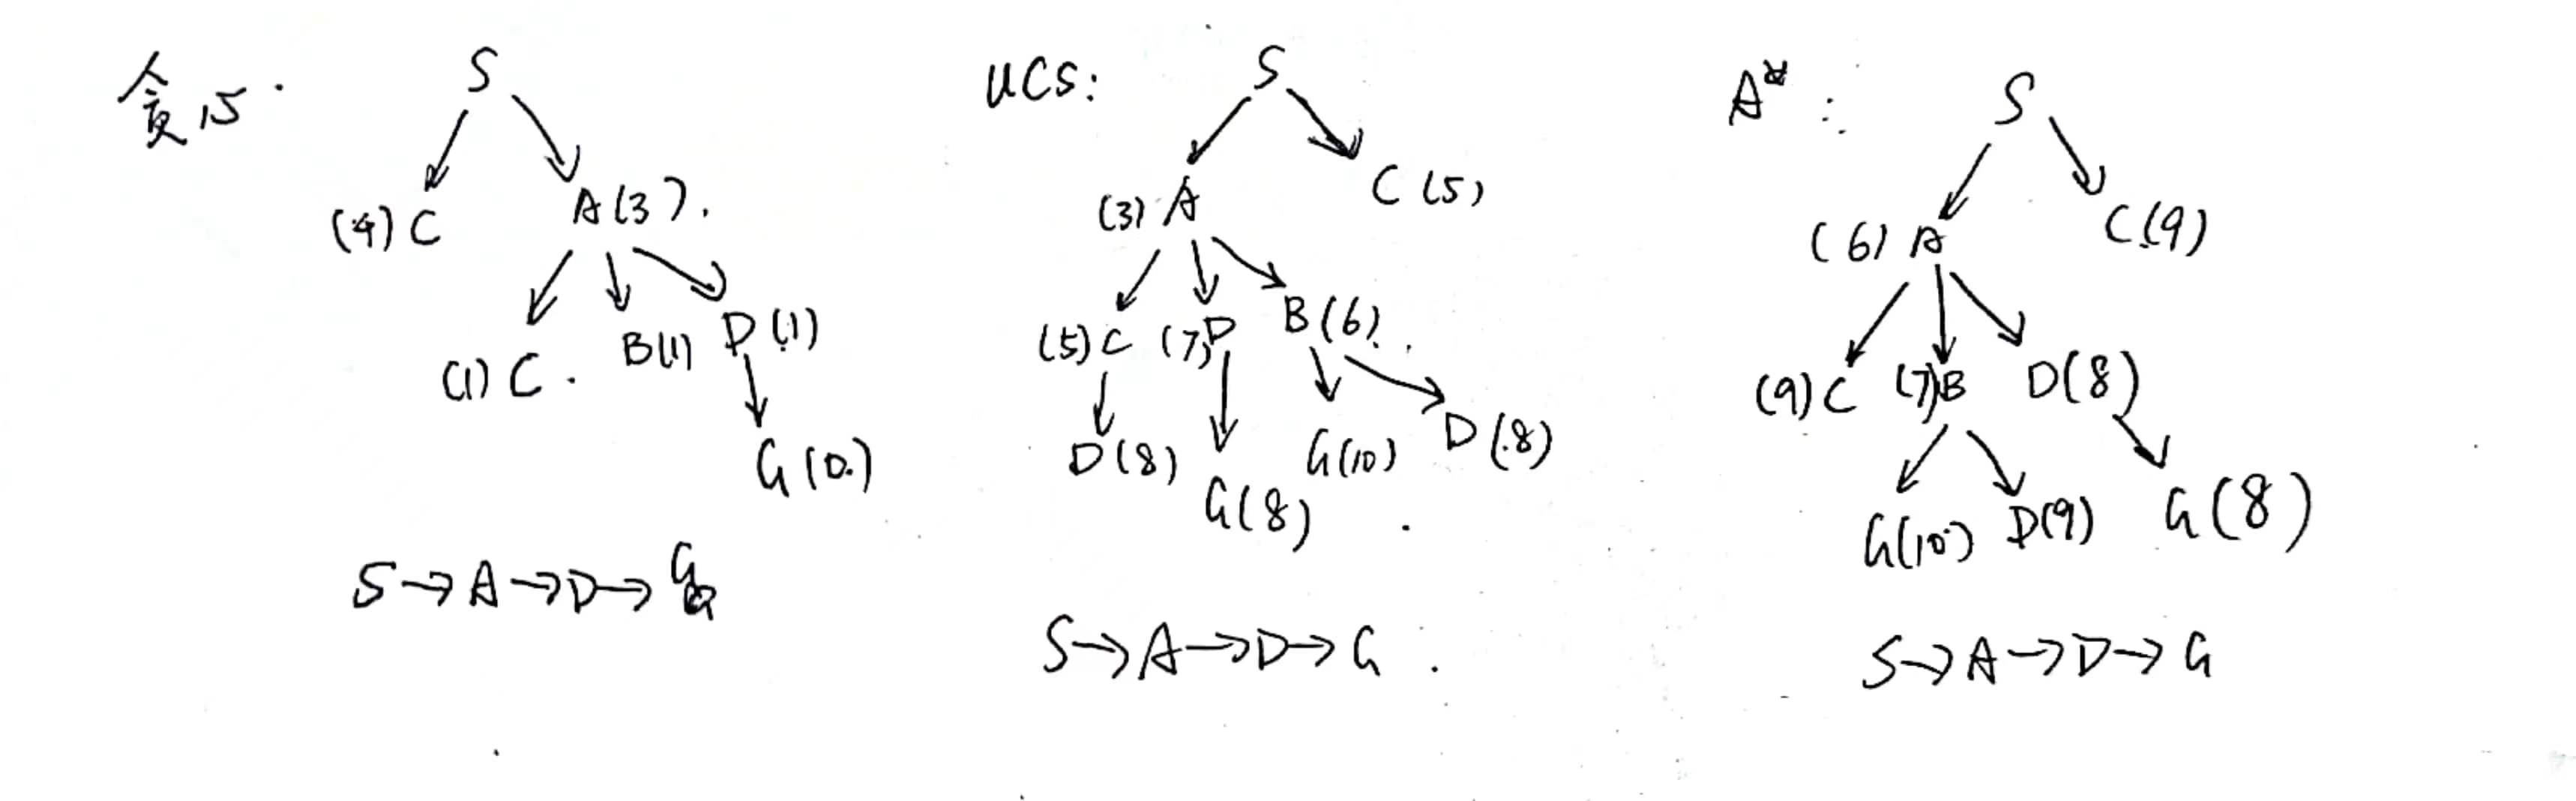 贪心:
S
(4) C A(3).
(1) C. B(1) D(1)
G(0)
S→A→D→G
UCS:
S
(3) A C(5)
(5)C (7)D B(6)
D(8) G(8) G(10) D(8)
S→A→D→G.
A*:
S
(6) A C(9)
(9)C (7)B D(8)
G(10) D(9) G(8)
S→A→D→G